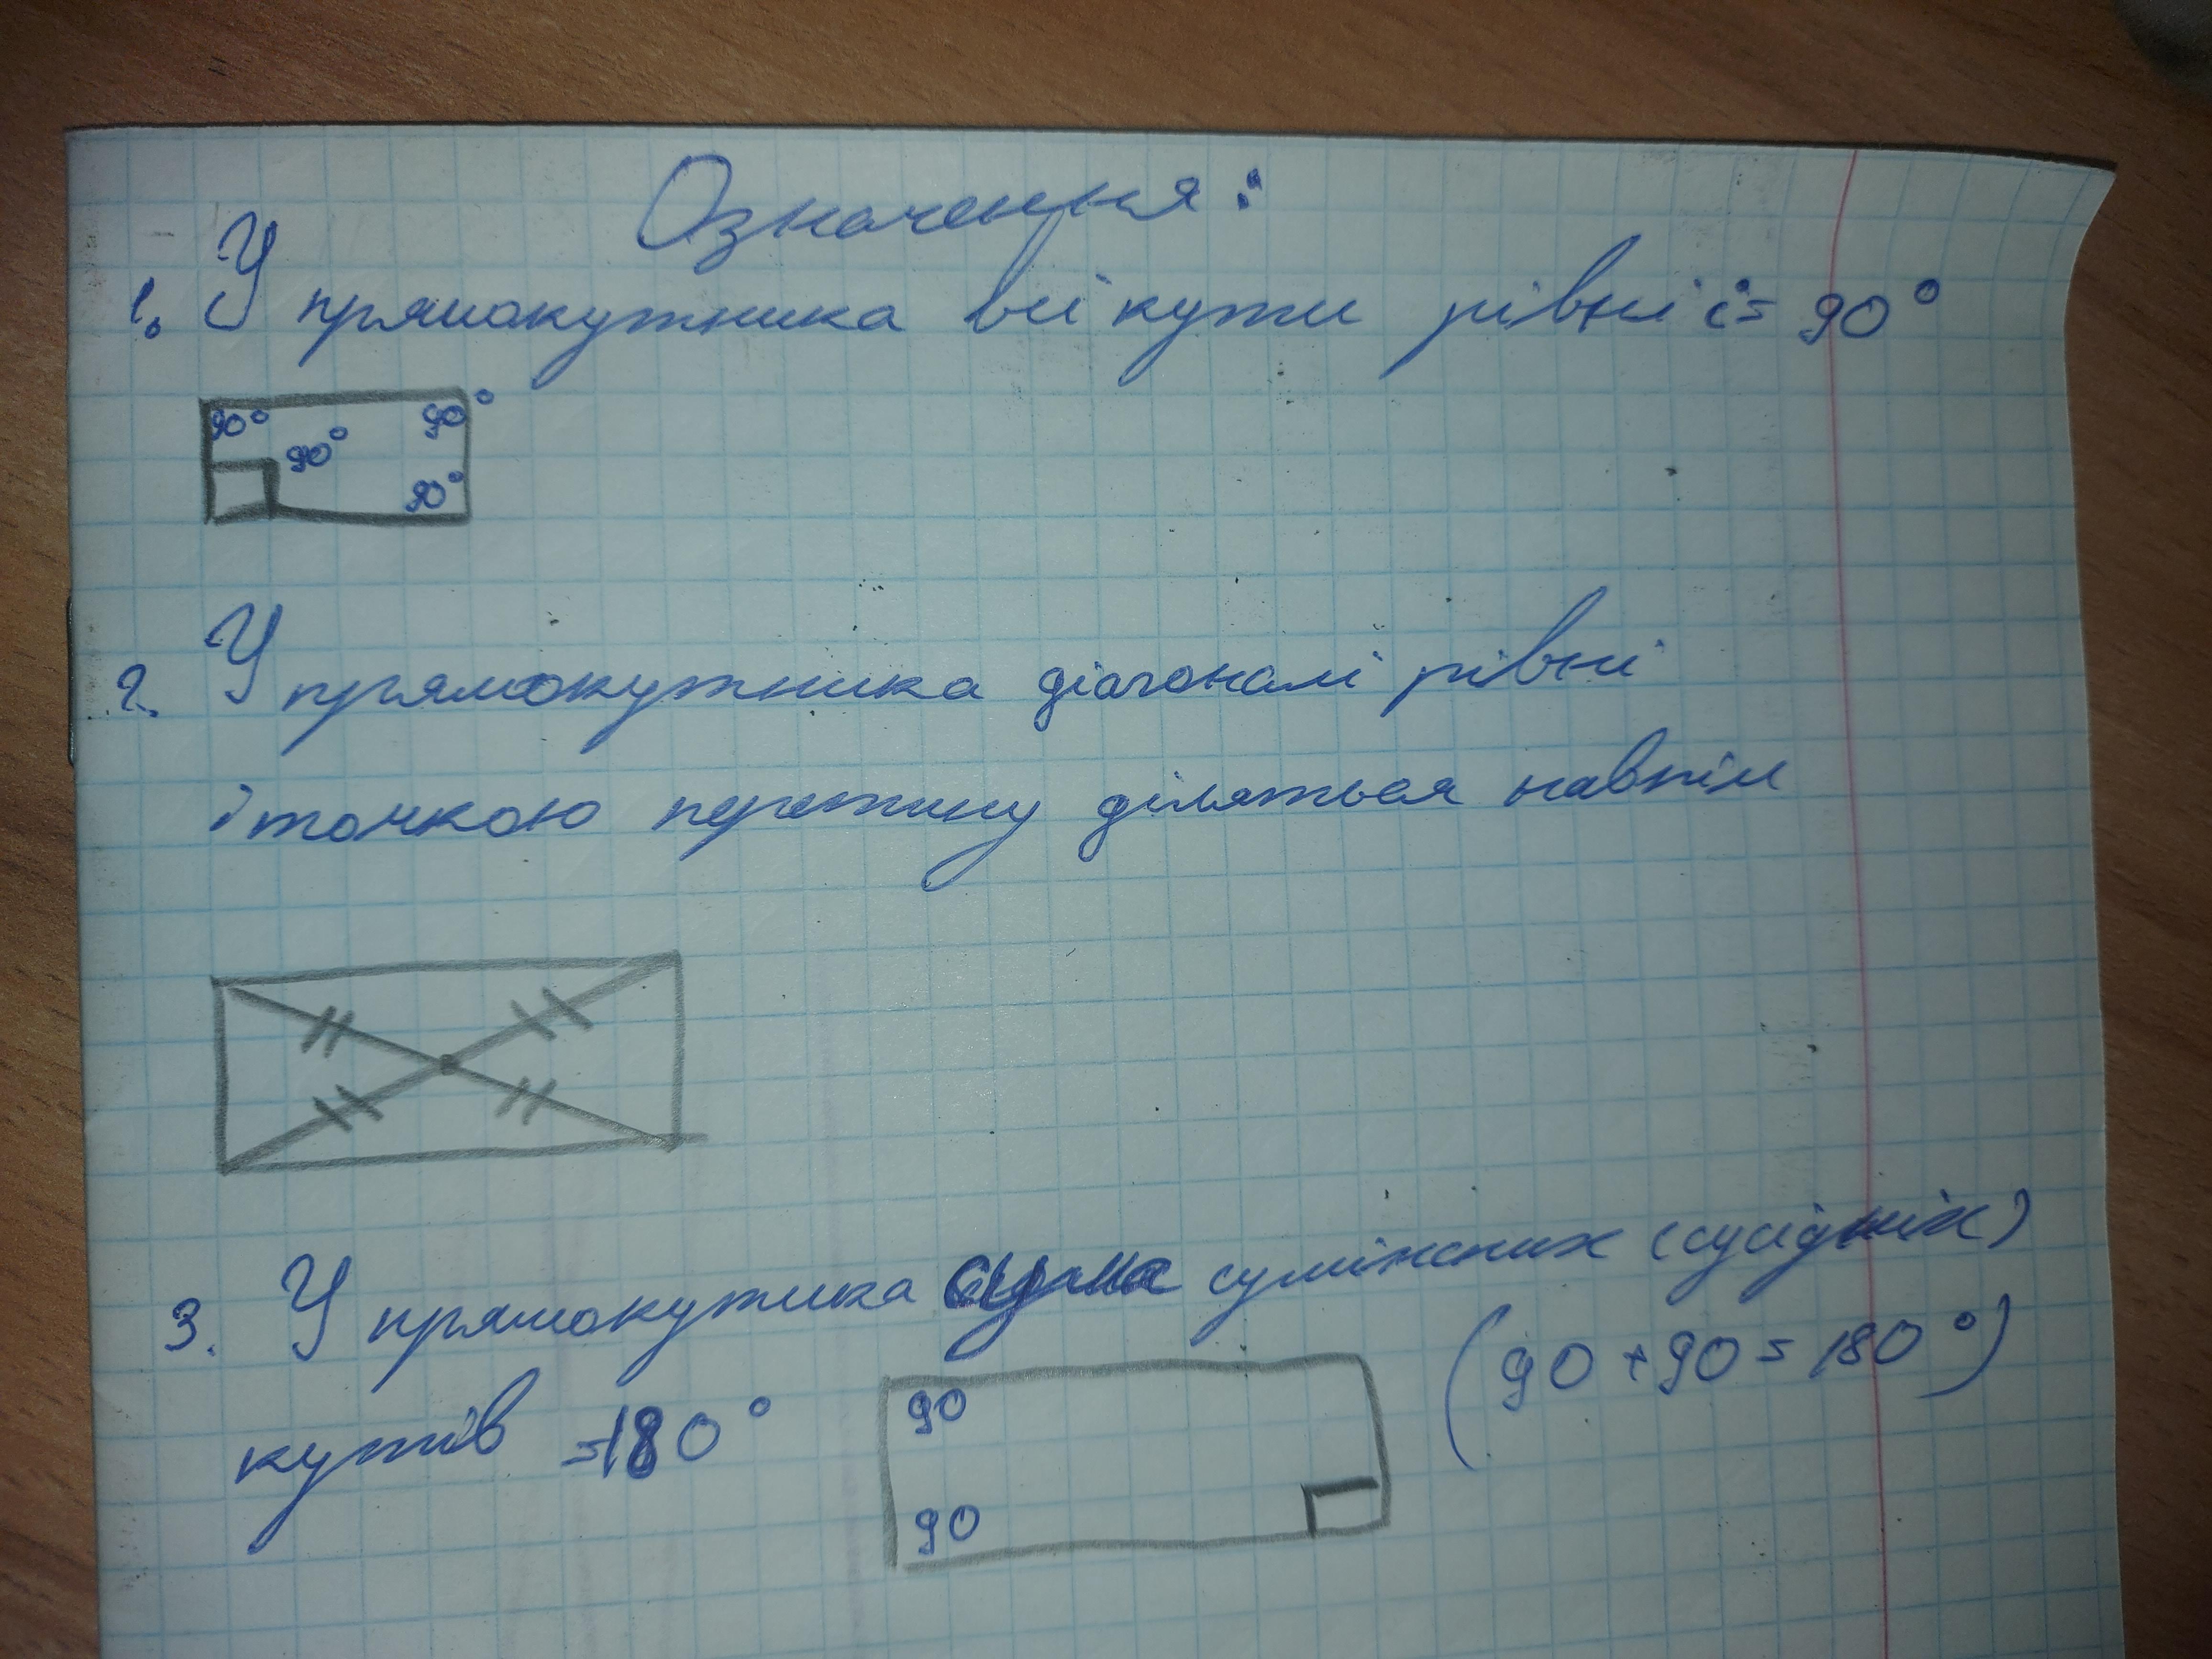 Означення:
1. У прямокутника всі кути рівні і = 90°
90° 90°
90°
90°
2. У прямокутника діагоналі рівні
і точкою перетину діляться навпіл
3. У прямокутника сума суміжних (сусідніх)
кутів =180°
90
90
(90+90=180°)